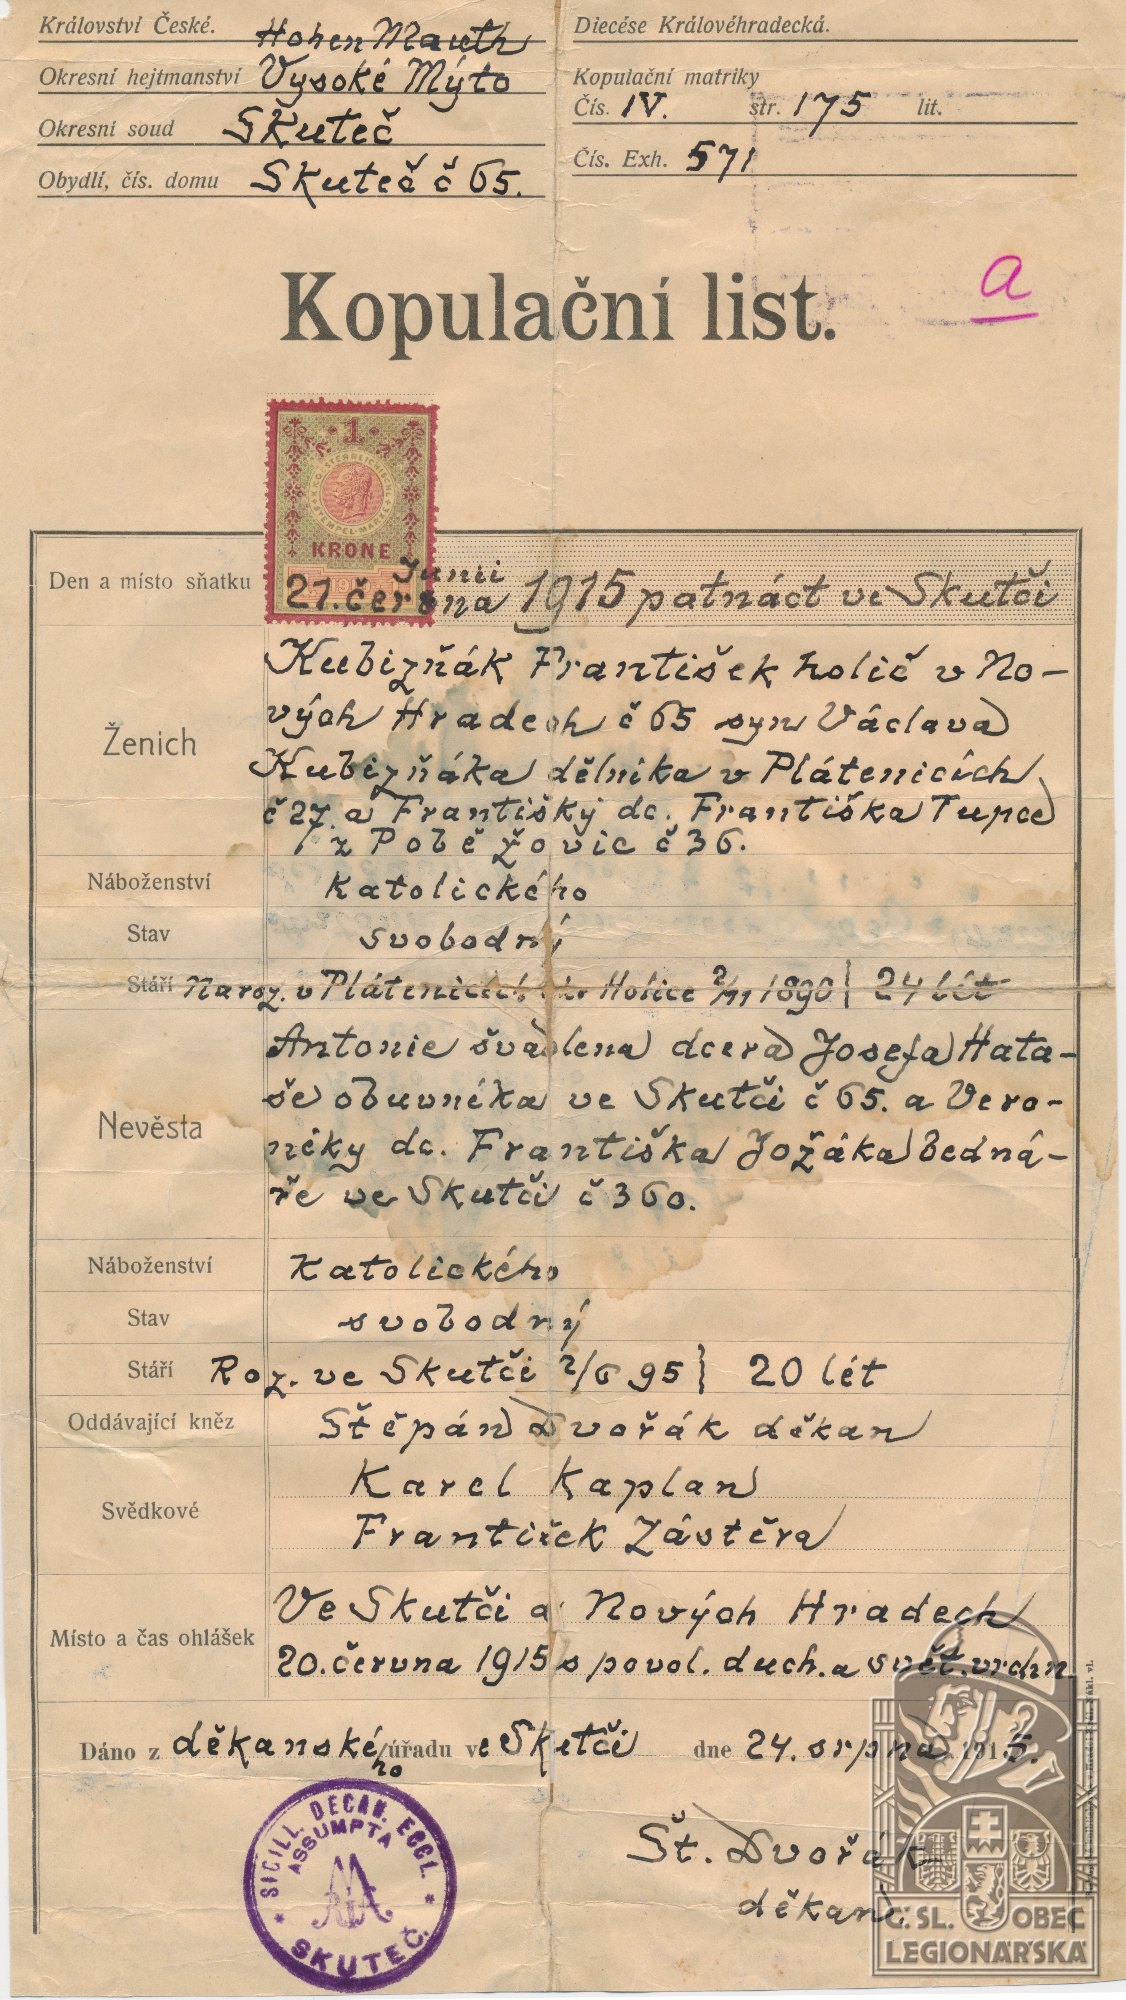 Království České.
Hohen Mauth
Okresní hejtmanství Vysoké Mýto
Okresní soud Skuteč
Obydlí, čís. domu Skuteč č 65.
Diecése Královéhradecká.
Kopulační matriky
Čís. IV. str. 175 lit.
Čís. Exh. 571
Kopulační list.
a
1
KRONE
Junii
Den a místo sňatku 21. června 1915 patnáct ve Skutči
Ženich
Kubizňák František holič v No-
vých Hradech č 65 syn Václava
Kubizňáka dělníka v Plátenicích
č 27. a Františky dc. Františka Tupce
z Poběžovic č 36.
Náboženství Katolického
Stav svobodný
Stáří Naroz. v Plátenicích Holice 2/11 1890 24 lét
Nevěsta
Antonie švadlena dcera Josefa Hata-
še obuvníka ve Skutči č 65. a Vero-
niky dc. Františka Jožáka bedná-
ře ve Skutči č 360.
Náboženství Katolického
Stav svobodný
Stáří Roz. ve Skutči 2/6 95 20 lét
Oddávající kněz Štěpán Dvořák děkan
Svědkové
Karel Kaplan
František Zástěra
Místo a čas ohlášek
Ve Skutči a Nových Hradech
20. června 1915 s povol. duch. a svět. vrchn.
Dáno z děkanského úřadu ve Skutči dne 24. srpna 1915.
SIGILL. DECAN. ECCL.
ASSUMPTA
SKUTEČ.
Št. Dvořák
děkan.
Č. SL. OBEC
LEGIONÁŘSKÁ